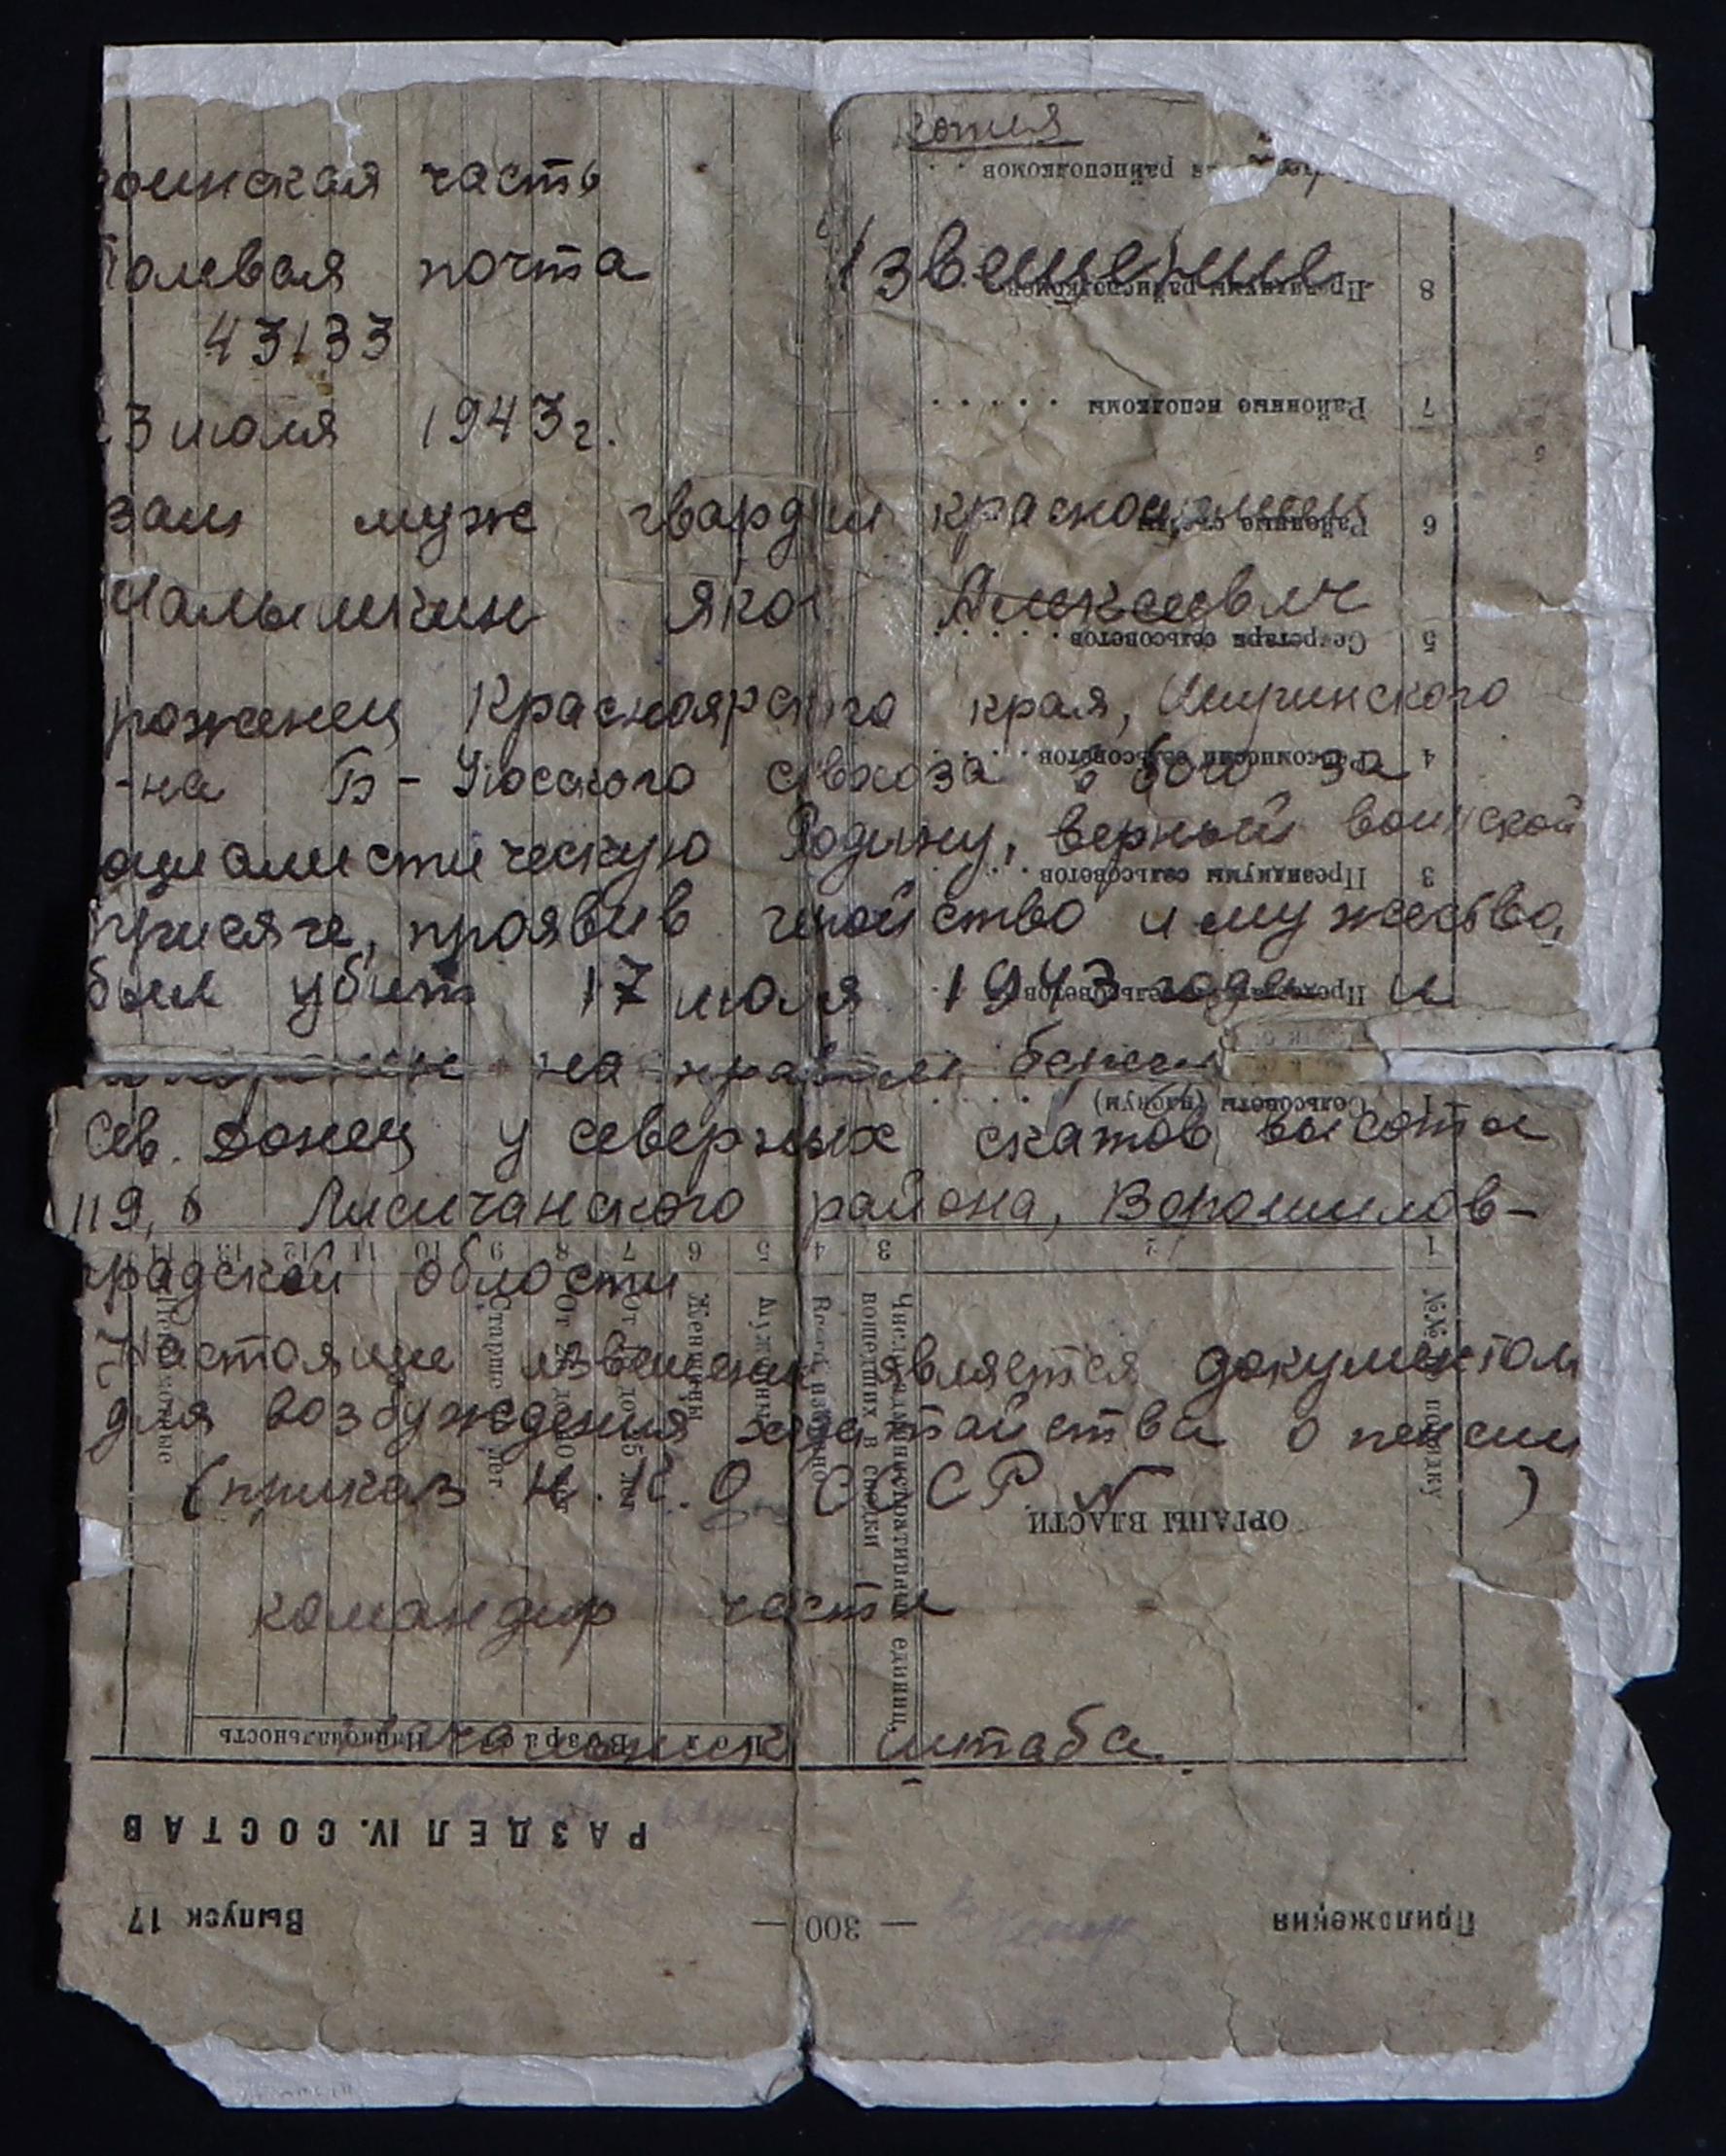 копия
воинская часть
Полевая почта Извещение
43133
23 июля 1943 г.
ваш муж гвардии красноармеец
Чалышкин Яков Алексеевич
уроженец Красноярского края, Ширинского
р-на Б-Июсского совхоза в бою за
социалистическую Родину, верный воинской
присяге, проявив геройство и мужество,
был убит 17 июля 1943 года и
похоронен на правом берегу
Сев. Донец у северных скатов высоты
119,6 Лисичанского района, Ворошилов-
градской области
Настоящее извещение является документом
для возбуждения ходатайства о пенсии
(приказ Н.К.О. СССР N )
командир части
начальник штаба
Приложения — 300 — Выпуск 17
РАЗДЕЛ IV. СОСТАВ
№№ по порядку
ОРГАНЫ ВЛАСТИ
Число административных единиц,
вошедших в сводки
Всего избрано
Мужчины
Женщины
Старше лет
Пол Возраст Национальность
1 2 3 4 5 6 7 8 9 10 11 12 13 14
1 Сельсоветы (пленум)
2 Председатели сельсоветов
3 Президиумы сельсоветов
4 Ревкомиссии сельсоветов
5 Секретари сельсоветов
6 Районные съезды
7 Районные исполкомы
8 Президиумы райисполкомов
райисполкомов